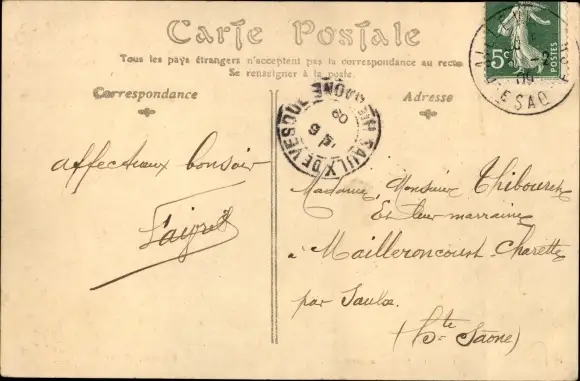 Carte Postale
Tous les pays étrangers n'acceptent pas la correspondance au recto
Se renseigner à la poste.
Correspondance
Adresse
5c
POSTES
SAULX DE VESOUL
affectueux bonsoir
Madame, Monsieur Thibouret
Et leur marraine
à Mailleroncourt-Charette
par Saulx
(Hte Saône)